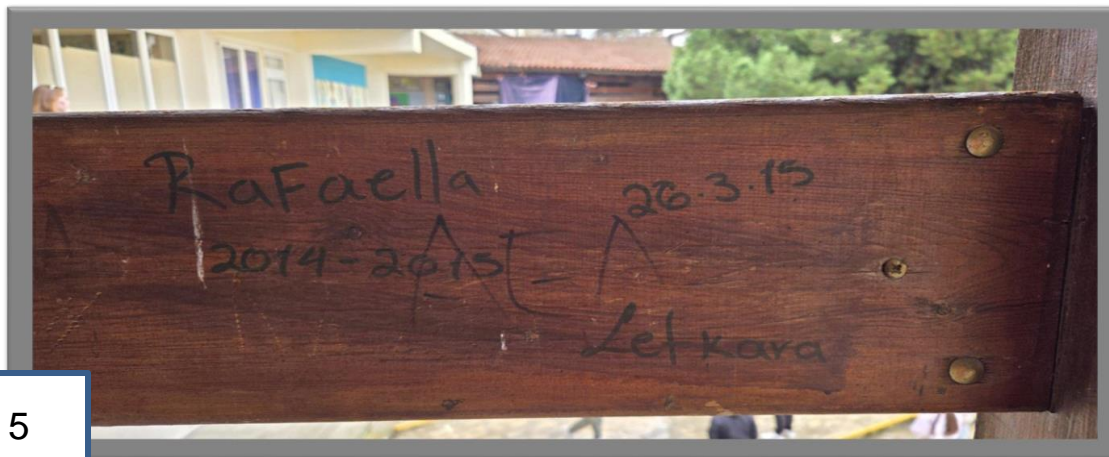 RaFaella
26.3.15
2014-2015
ΑΕΛ
Lefkara
5